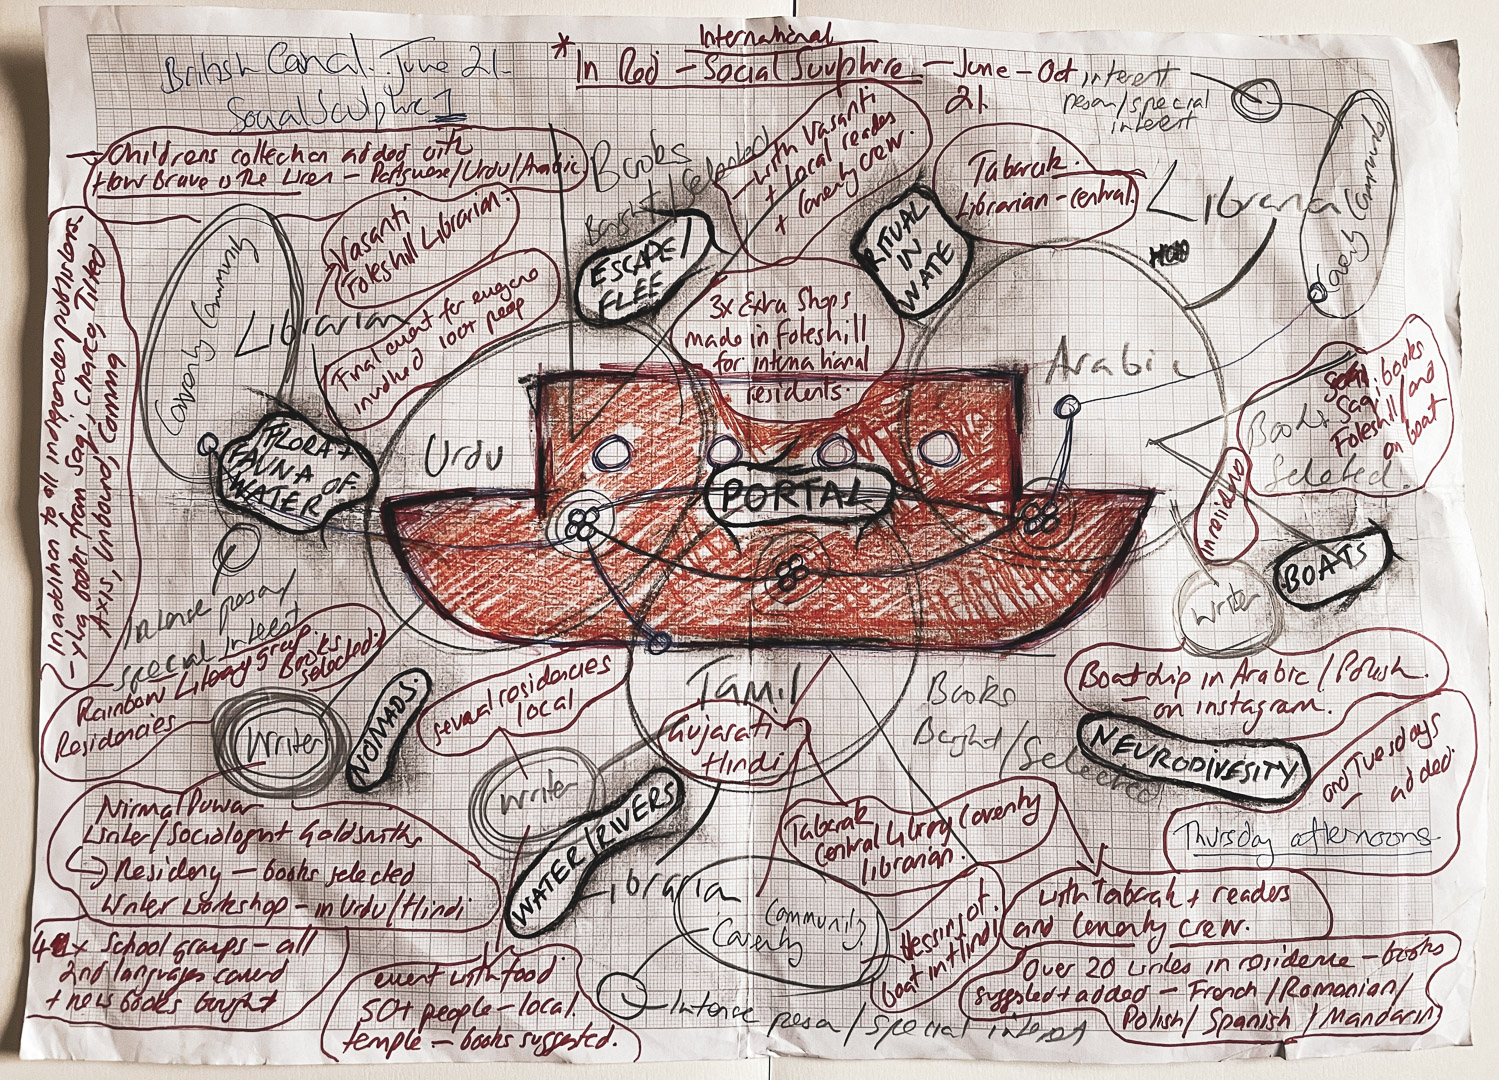 British Canal. June 21.
Social Sculpture 1
International
* In Red - Social Sculpture - June - Oct
21.
interest
peson/special
interest
Childrens collection added with
How Brave is the Lion - Portuguese/Urdu/Arabic
Books
Bought/Selected
with Vasanti
+ local readers
+ Coventry crew.
Tabarak.
Librarian - central.
Librarian
Coventry Community
Vasanti
Foleshill Librarian.
Coventry Community
Librarian
Final event for evryone
involved 100+ peop
ESCAPE/
FLEE
RITUAL
IN
WATE
3x Extra Shops
made in Foleshill
for international
residents.
In addition to all independen publishers
- xtra books from Saqi, Chares, Tilted
Axis, Inbound, Comma
Arabic
Saqi books
Foleshill/and
on boat
Books
Selected.
Urdu
FLORA +
FAUNA OF
WATER
PORTAL
in residno
BOATS
Writer
Intense peson/
special interest
Rainbow Literary group
Books
selected.
Residencies
Writer
NOMADS.
several residencies
local
Tamil
Gujarati
Hindi
Books
Bought/Selected
Boat ship in Arabic/Polish
on instagram.
NEURODIVESITY
and Tuesdays
added.
Thursday afternoons
Writer
WATER/RIVERS
Nirmal Puwar
Writer/Sociologist Goldsmiths
Residency - books selected
Writer workshop - in Urdu/Hindi
Tabarak
Central Library Coventry
librarian.
Librarian
Community
Coventry
with Tabarak + readers
and Coventry crew.
Messing at.
boat in Hindi
4x School groups - all
2nd languages covered
+ new books bought
event with food
50+ people - local.
temple - books suggested.
Intense peson/special interest
Over 20 writes in residence - books
suggested + added - French/Romanian/
Polish/Spanish/Mandarin